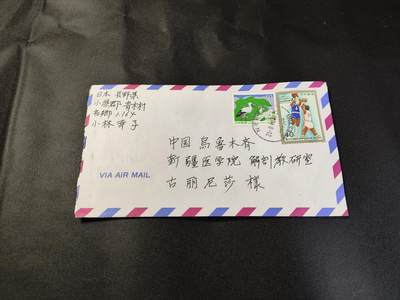 日本 長野県
小県郡 青木村
小林
40
中国 烏魯木斉
新疆医学院 解剖教研室
古丽尼莎 様
VIA AIR MAIL